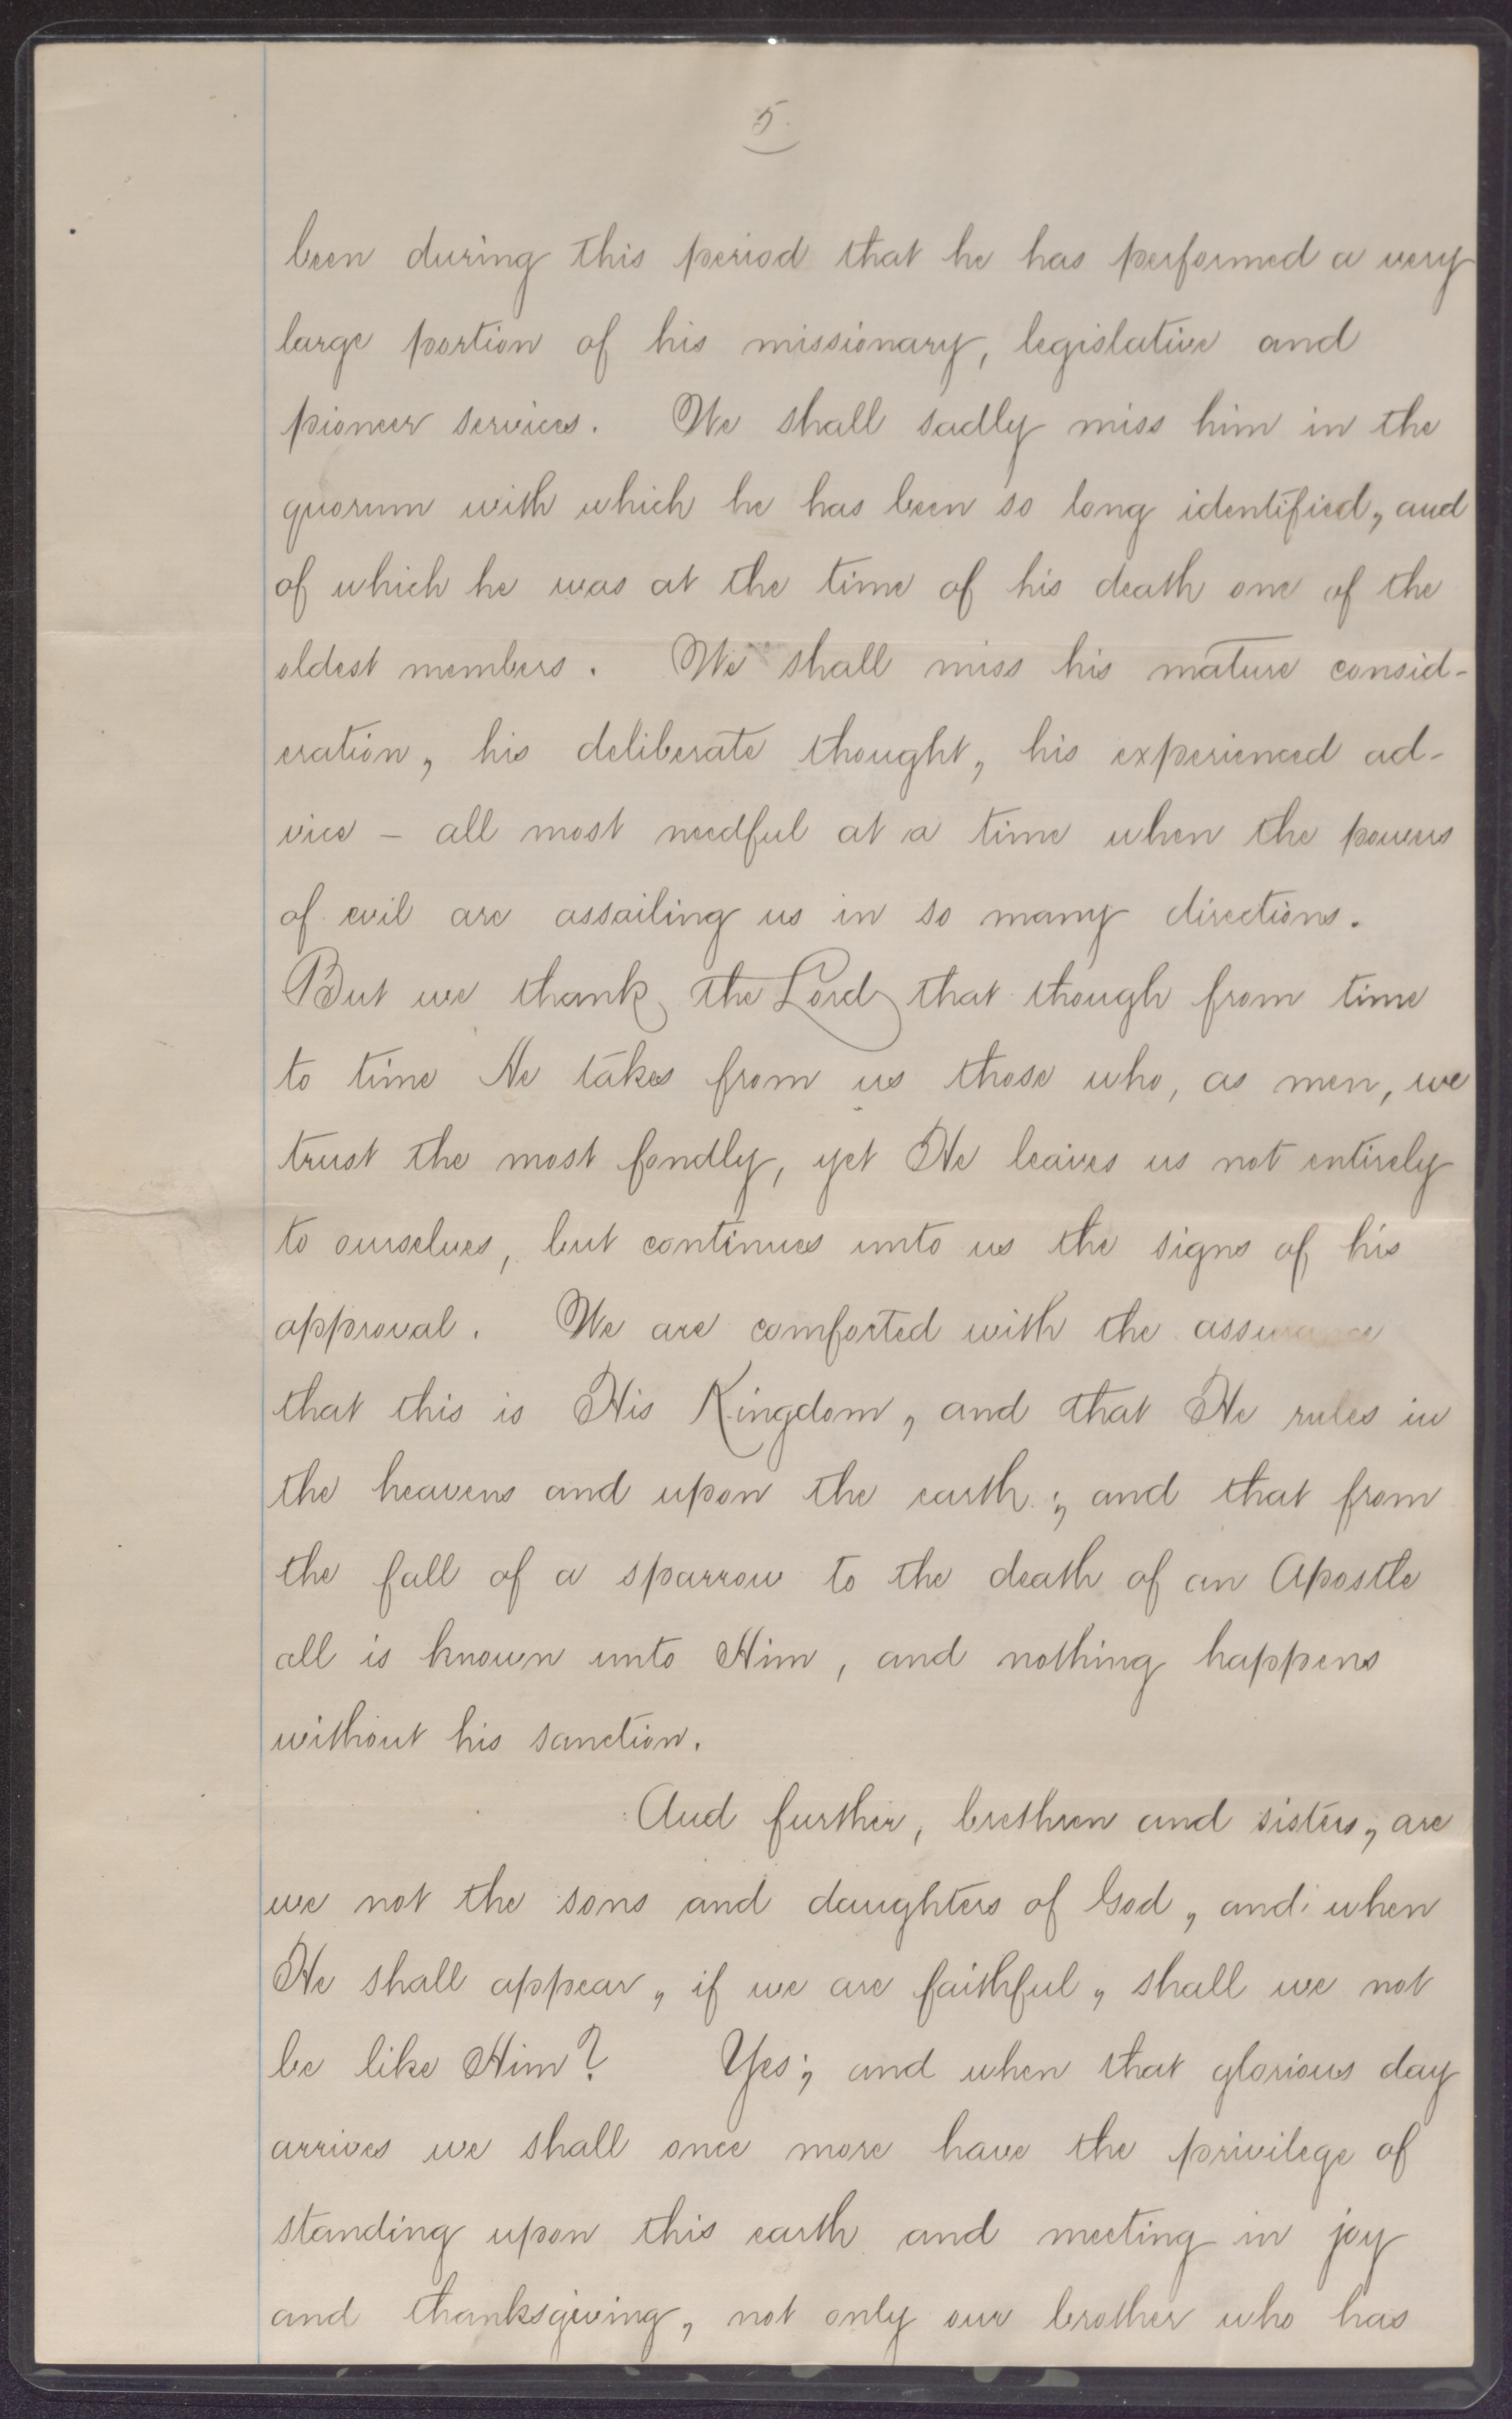 5.
been during this period that he has performed a very
large portion of his missionary, legislative and
pioneer services. We shall sadly miss him in the
quorum with which he has been so long identified, and
of which he was at the time of his death one of the
oldest members. We shall miss his mature consid-
eration, his deliberate thought, his experienced ad-
vice – all most needful at a time when the powers
of evil are assailing us in so many directions.
But we thank the Lord that though from time
to time He takes from us those who, as men, we
trust the most fondly, yet He leaves us not entirely
to ourselves, but continues unto us the signs of his
approval. We are comforted with the assurance
that this is His Kingdom, and that He rules in
the heavens and upon the earth; and that from
the fall of a sparrow to the death of an Apostle
all is known unto Him, and nothing happens
without his sanction.
And further, brethren and sisters, are
we not the sons and daughters of God, and when
He shall appear, if we are faithful, shall we not
be like Him? Yes; and when that glorious day
arrives we shall once more have the privilege of
standing upon this earth and meeting in joy
and thanksgiving, not only our brother who has